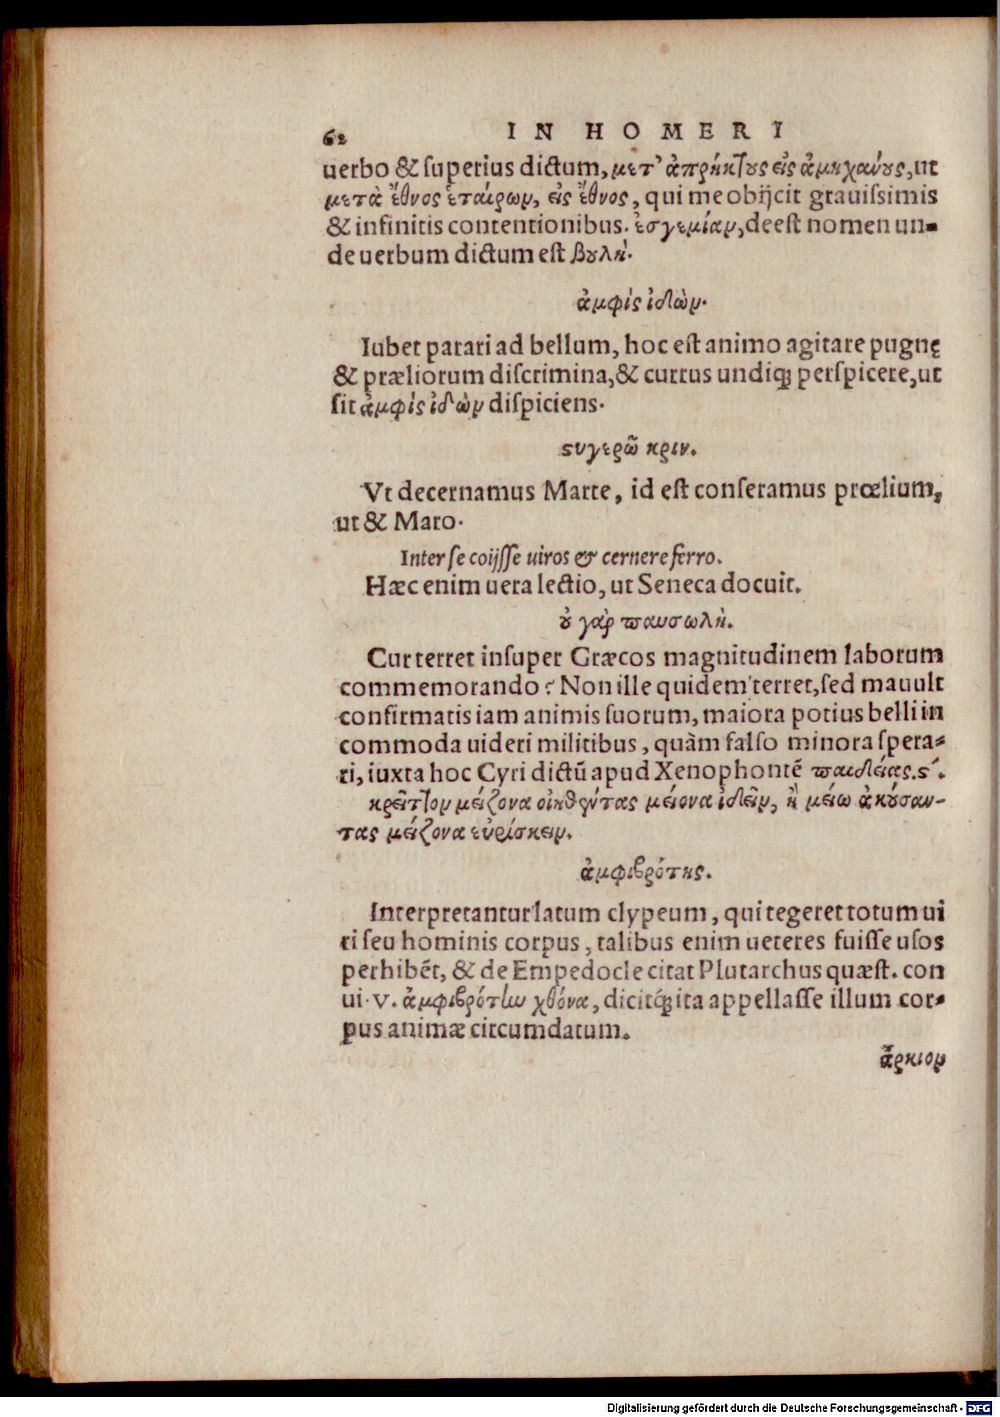 62 IN HOMERI
uerbo & superius dictum, μετ' ἀπρήκτους εἰς ἀμηχάνους, ut
μετὰ ἔθνος ἑταίρων, εἰς ἔθνος, qui me obijcit grauissimis
& infinitis contentionibus. ἐσγεμίαν, deest nomen un-
de uerbum dictum est βουλή.
ἀμφὶς ἰδὼν.
Iubet parari ad bellum, hoc est animo agitare pugnę
& præliorum discrimina, & currus undiq; perspicere, ut
sit ἀμφὶς ἰδὼν dispiciens.
στυγερῶ κριν.
Vt decernamus Marte, id est conseramus prœlium,
ut & Maro.
Inter se coijsse uiros & cernere ferro.
Hæc enim uera lectio, ut Seneca docuit.
οὐ γὰρ παυσωλὴ.
Cur terret insuper Græcos magnitudinem laborum
commemorando? Non ille quidem terret, sed mauult
confirmatis iam animis suorum, maiora potius belli in
commoda uideri militibus, quàm falso minora spera-
ri, iuxta hoc Cyri dictū apud Xenophontē παιδείας.ϛ'.
κρεῖττον μείζονα οἰηθέντας μείονα ἰδεῖν, ἢ μείω ἀκούσαν-
τας μείζονα εὑρίσκειν.
ἀμφιβρότης.
Interpretantur latum clypeum, qui tegeret totum ui
ri seu hominis corpus, talibus enim ueteres fuisse usos
perhibēt, & de Empedocle citat Plutarchus quæst. con
ui. V. ἀμφιβρότην χθόνα, dicitq́; ita appellasse illum cor-
pus animæ circumdatum.
ἄρκιον
Digitalisierung gefördert durch die Deutsche Forschungsgemeinschaft - DFG